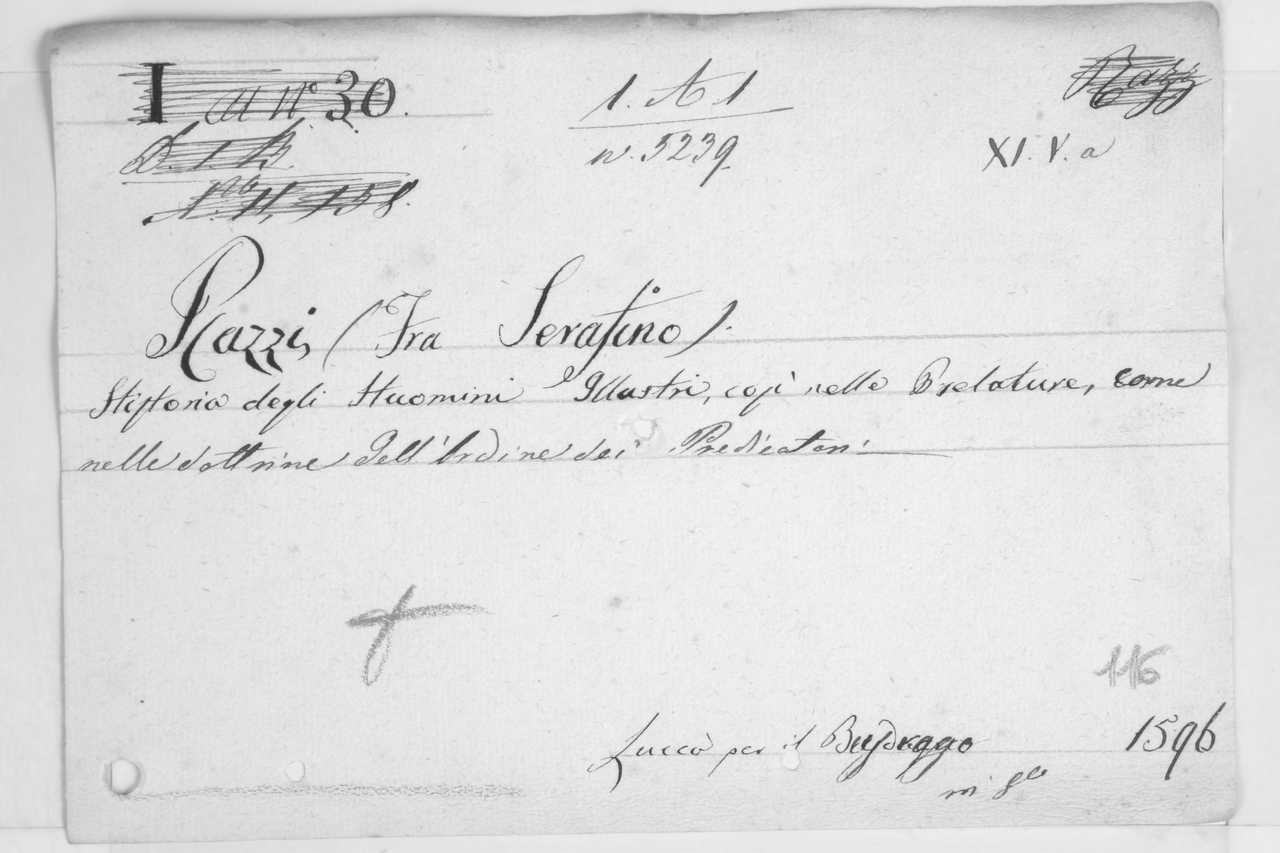 I a n° 30.
1. A 1
Razzi
D. I. B.
n. 5239
XI. V. a
N.° 11, 158.
Razzi, (Fra Serafino).
Historia degli Huomini Illustri, così nelle Prelature, come
nelle dottrine dell'Ordine dei Predicatori
116
Lucca per il Busdraggo 1596
in 8°